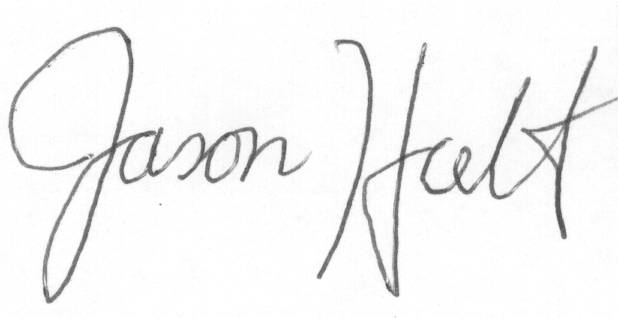 Jason Halt